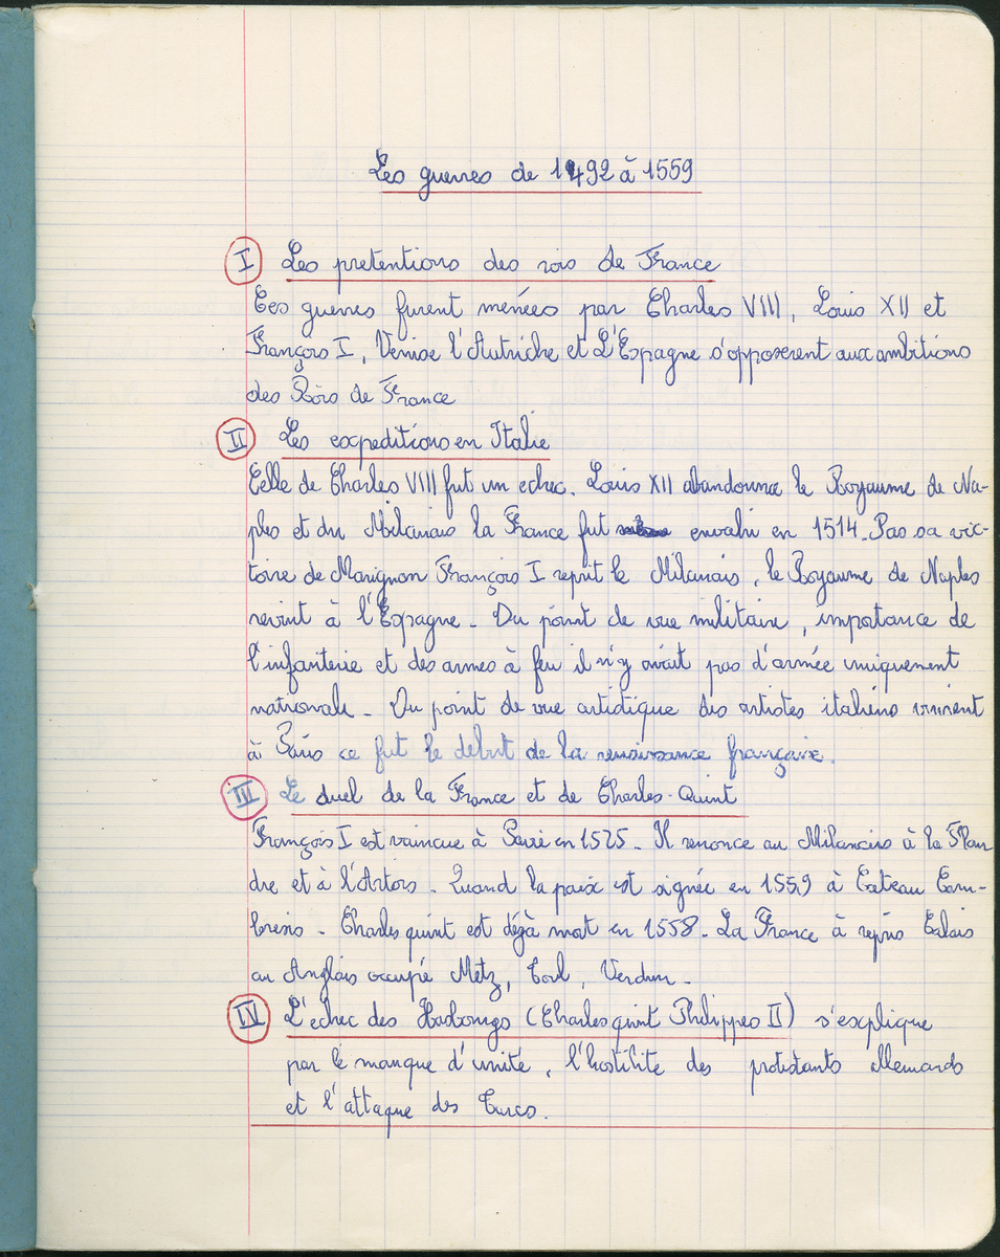 Les guerres de 1492 à 1559
I Les pretentions des rois de France
Ces guerres furent menées par Charles VIII, Louis XII et
François I, Venise l'Autriche et L'Espagne s'opposerent aux ambitions
des Rois de France
II Les expeditions en Italie
Celle de Charles VIII fut un echec. Louis XII abandonna le Royaume de Na-
ples et du Milanais la France fut envahi en 1514. Pas sa vic-
toire de Marignan François I reprit le Milanais, le Royaume de Naples
revint à l'Espagne. Du point de vue militaire, importance de
l'infanterie et des armes à feu il n'y avait pas d'armée uniquement
nationale. Du point de vue artistique des artistes italiens vinrent
à Paris ce fut le debut de la renaissance française.
III Le duel de la France et de Charles-Quint
François I est vaincue à Pavie en 1525. Il renonce au Milanais à la Flan
dre et à l'Artois. Quand la paix est signée en 1559 à Cateau Cam-
bresis. Charles quint est déjà mort en 1558. La France à repris Calais
au Anglais occupé Metz, Toul, Verdun.
IV L'echec des Hasbourgs (Charles quint Philippes II) s'explique
par le manque d'unité, l'hostilite des protestants allemands
et l'attaque des Turcs.